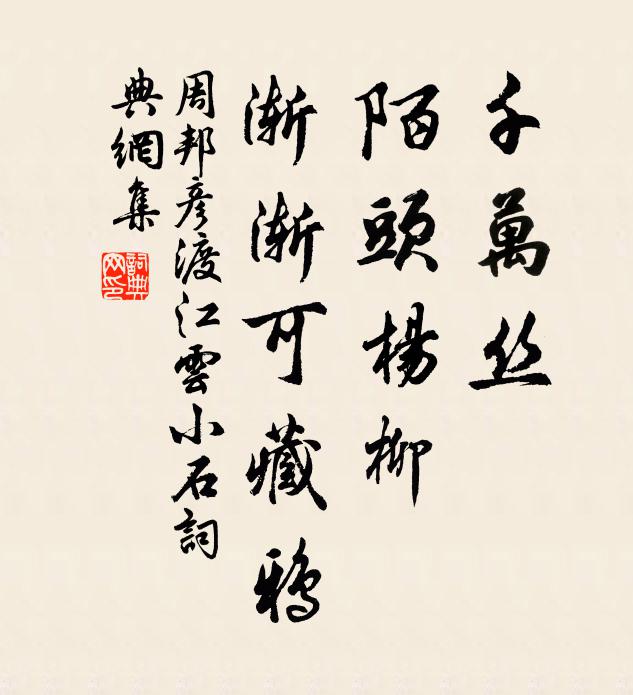 千萬丝
陌頭楊柳
漸漸可藏鴉
周邦彦渡江雲小石詞
典網集
詞典网印